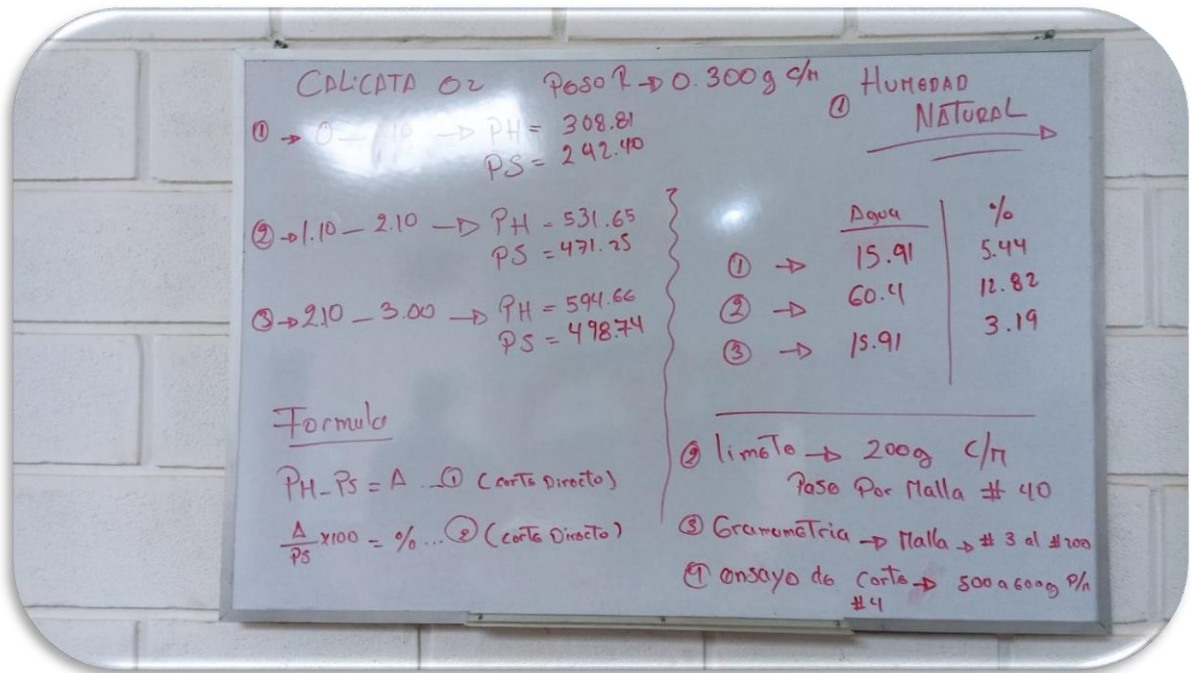 CALICATA 02 Peso R → 0.300g c/M
① → 0 — 1.10 → PH = 308.81
PS = 292.40
② → 1.10 — 2.10 → PH = 531.65
PS = 471.25
③ → 2.10 — 3.00 → PH = 594.66
PS = 498.74
Formula
PH - PS = A ... ① (corte Directo)
A/PS x100 = % ... ② (corte Directo)
① HUMEDAD
NATURAL
Agua %
① → 15.91 5.44
② → 60.4 12.82
③ → 15.91 3.19
② limete → 200g c/M
Paso Por Malla # 40
③ Granometria → Malla → # 3 al #200
④ ensayo de corte → 500 a 600g P/n
#4